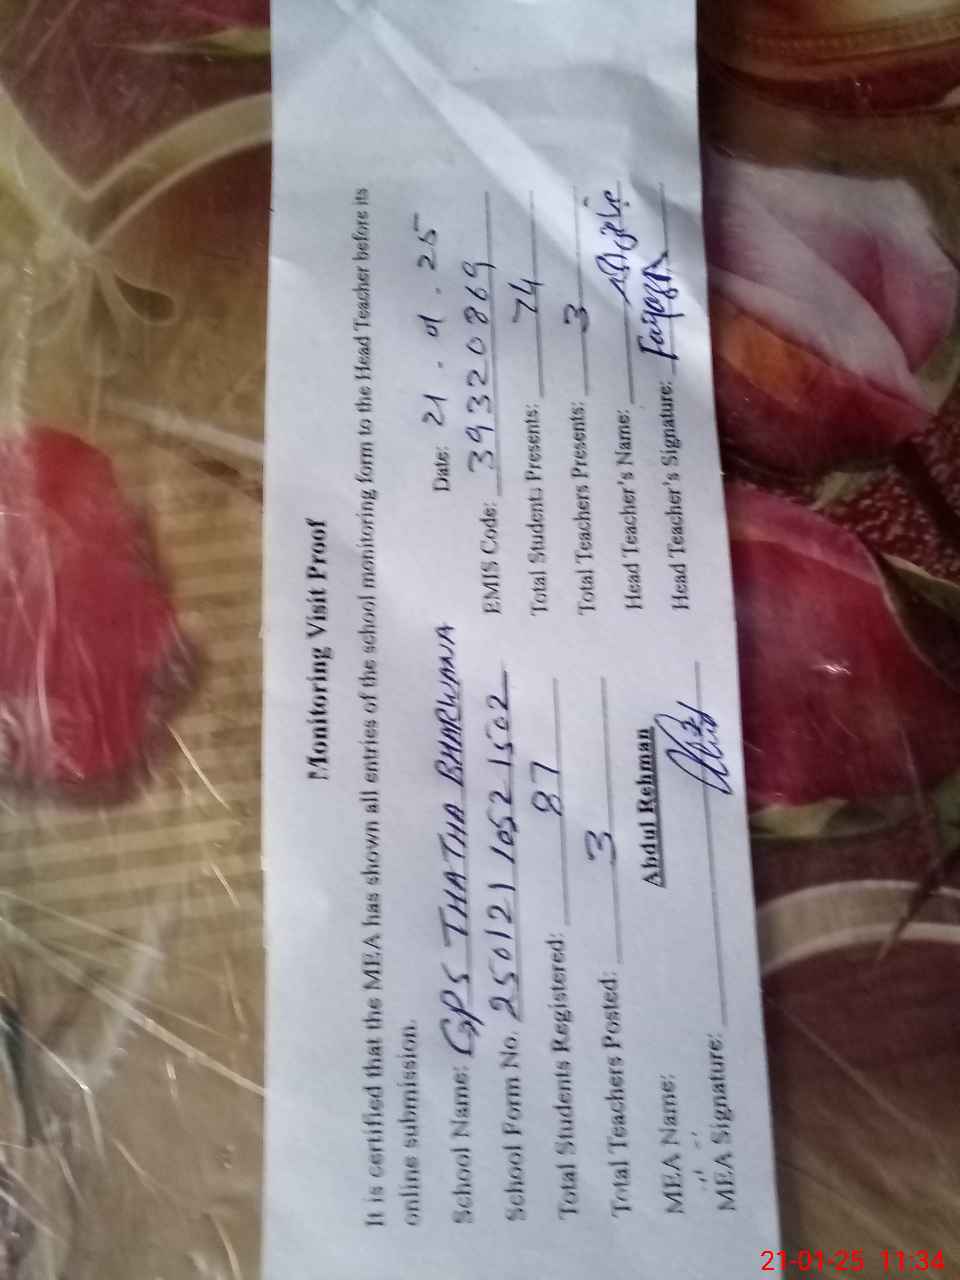 Monitoring Visit Proof
It is certified that the MEA has shown all entries of the school monitoring form to the Head Teacher before its
online submission.
Date: 21.01.25
School Name: GPS THATHA BHARWANA
EMIS Code: 39320869
School Form No. 250121 1052 1502
Total Students Presents: 74
Total Students Registered: 87
Total Teachers Presents: 3
Total Teachers Posted: 3
Head Teacher's Name:
MEA Name: Abdul Rehman
Head Teacher's Signature:
MEA Signature:
21-01-25 11:34